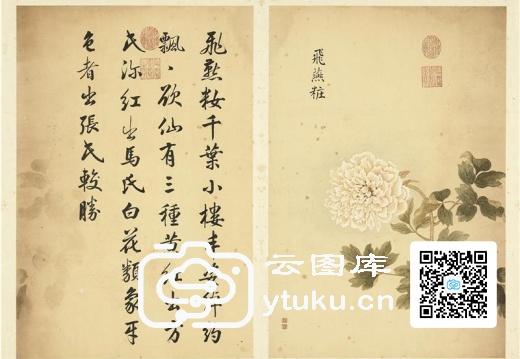 飛燕粧
飛燕粧千葉小樓丰姿綽約
飄〻欲仙有三種黃紅出方
氏深紅出馬氏白花類象牙
色者出張氏較勝
云图库
ytuku.cn